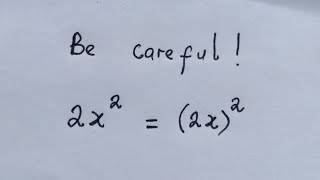 Be careful!
2x² = (2x)²